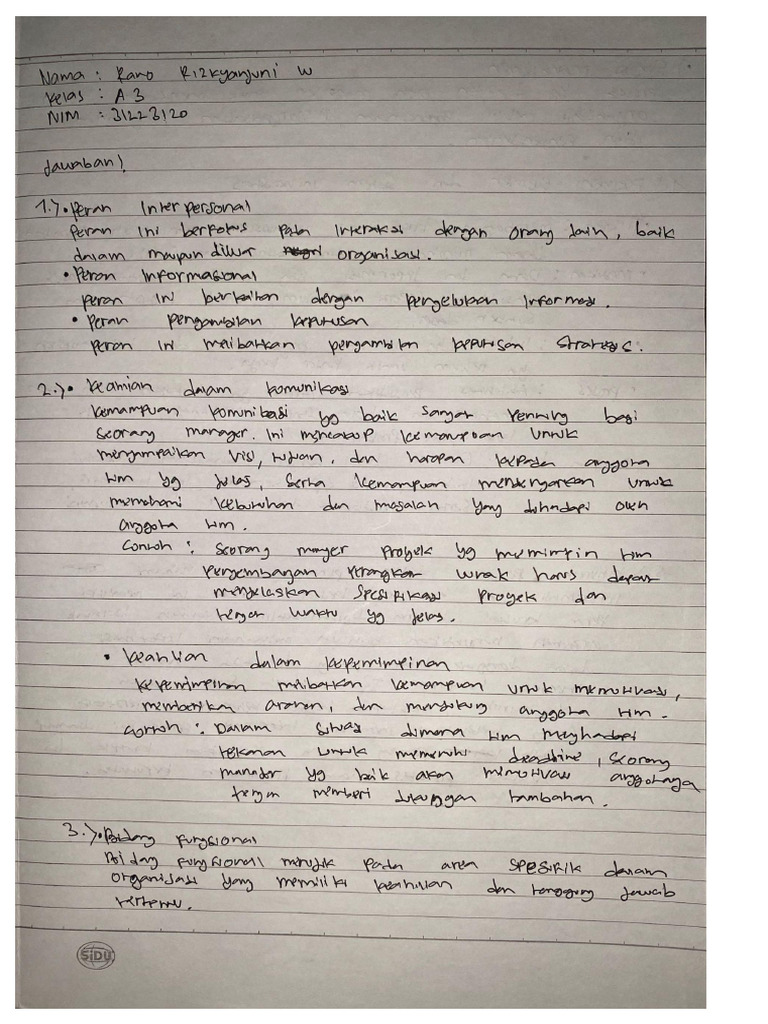 Nama : Rano Rizkyanjuni W
Kelas : A3
NIM : 31223120
Jawaban!
1.) • Peran Interpersonal
Peran ini berfokus pada interaksi dengan orang lain, baik
dalam maupun diluar organisasi.
• Peran Informasional
Peran ini berkaitan dengan pengelolaan informasi.
• Peran pengambilan keputusan
Peran ini melibatkan pengambilan keputusan strategis.
2.) • Keahlian dalam komunikasi
Kemampuan komunikasi yg baik sangat penting bagi
seorang manager. Ini mencakup kemampuan untuk
menyampaikan visi, tujuan, dan harapan kepada anggota
tim yg jelas, serta kemampuan mendengarkan untuk
memahami kebutuhan dan masalah yang dihadapi oleh
anggota tim.
Contoh : Seorang manajer proyek yg memimpin tim
pengembangan perangkat lunak harus dapat
menjelaskan spesifikasi proyek dan
tenggat waktu yg jelas.
• Keahlian dalam kepemimpinan
Kepemimpinan melibatkan kemampuan untuk memotivasi,
memberikan arahan, dan mendukung anggota tim.
Contoh : Dalam situasi dimana tim menghadapi
tekanan untuk memenuhi deadline, seorang
manajer yg baik akan memotivasi anggotanya
dengan memberi dukungan tambahan.
3.) • Bidang fungsional
Bidang fungsional merujuk pada area spesifik dalam
organisasi yang memiliki keahlian dan tanggung jawab
tertentu.
SiDU